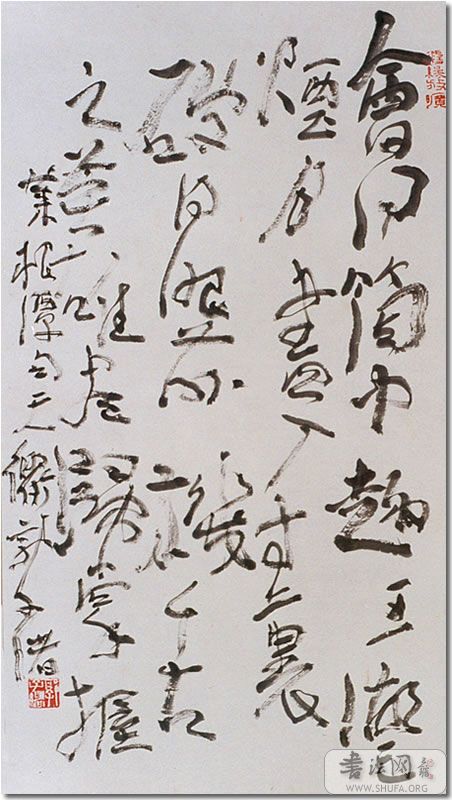 會得箇中趣五湖之
煙月盡入寸裏
破得眼前機千古
之英雄盡歸掌握
菜根譚句
書法网
WWW.SHUFA.ORG